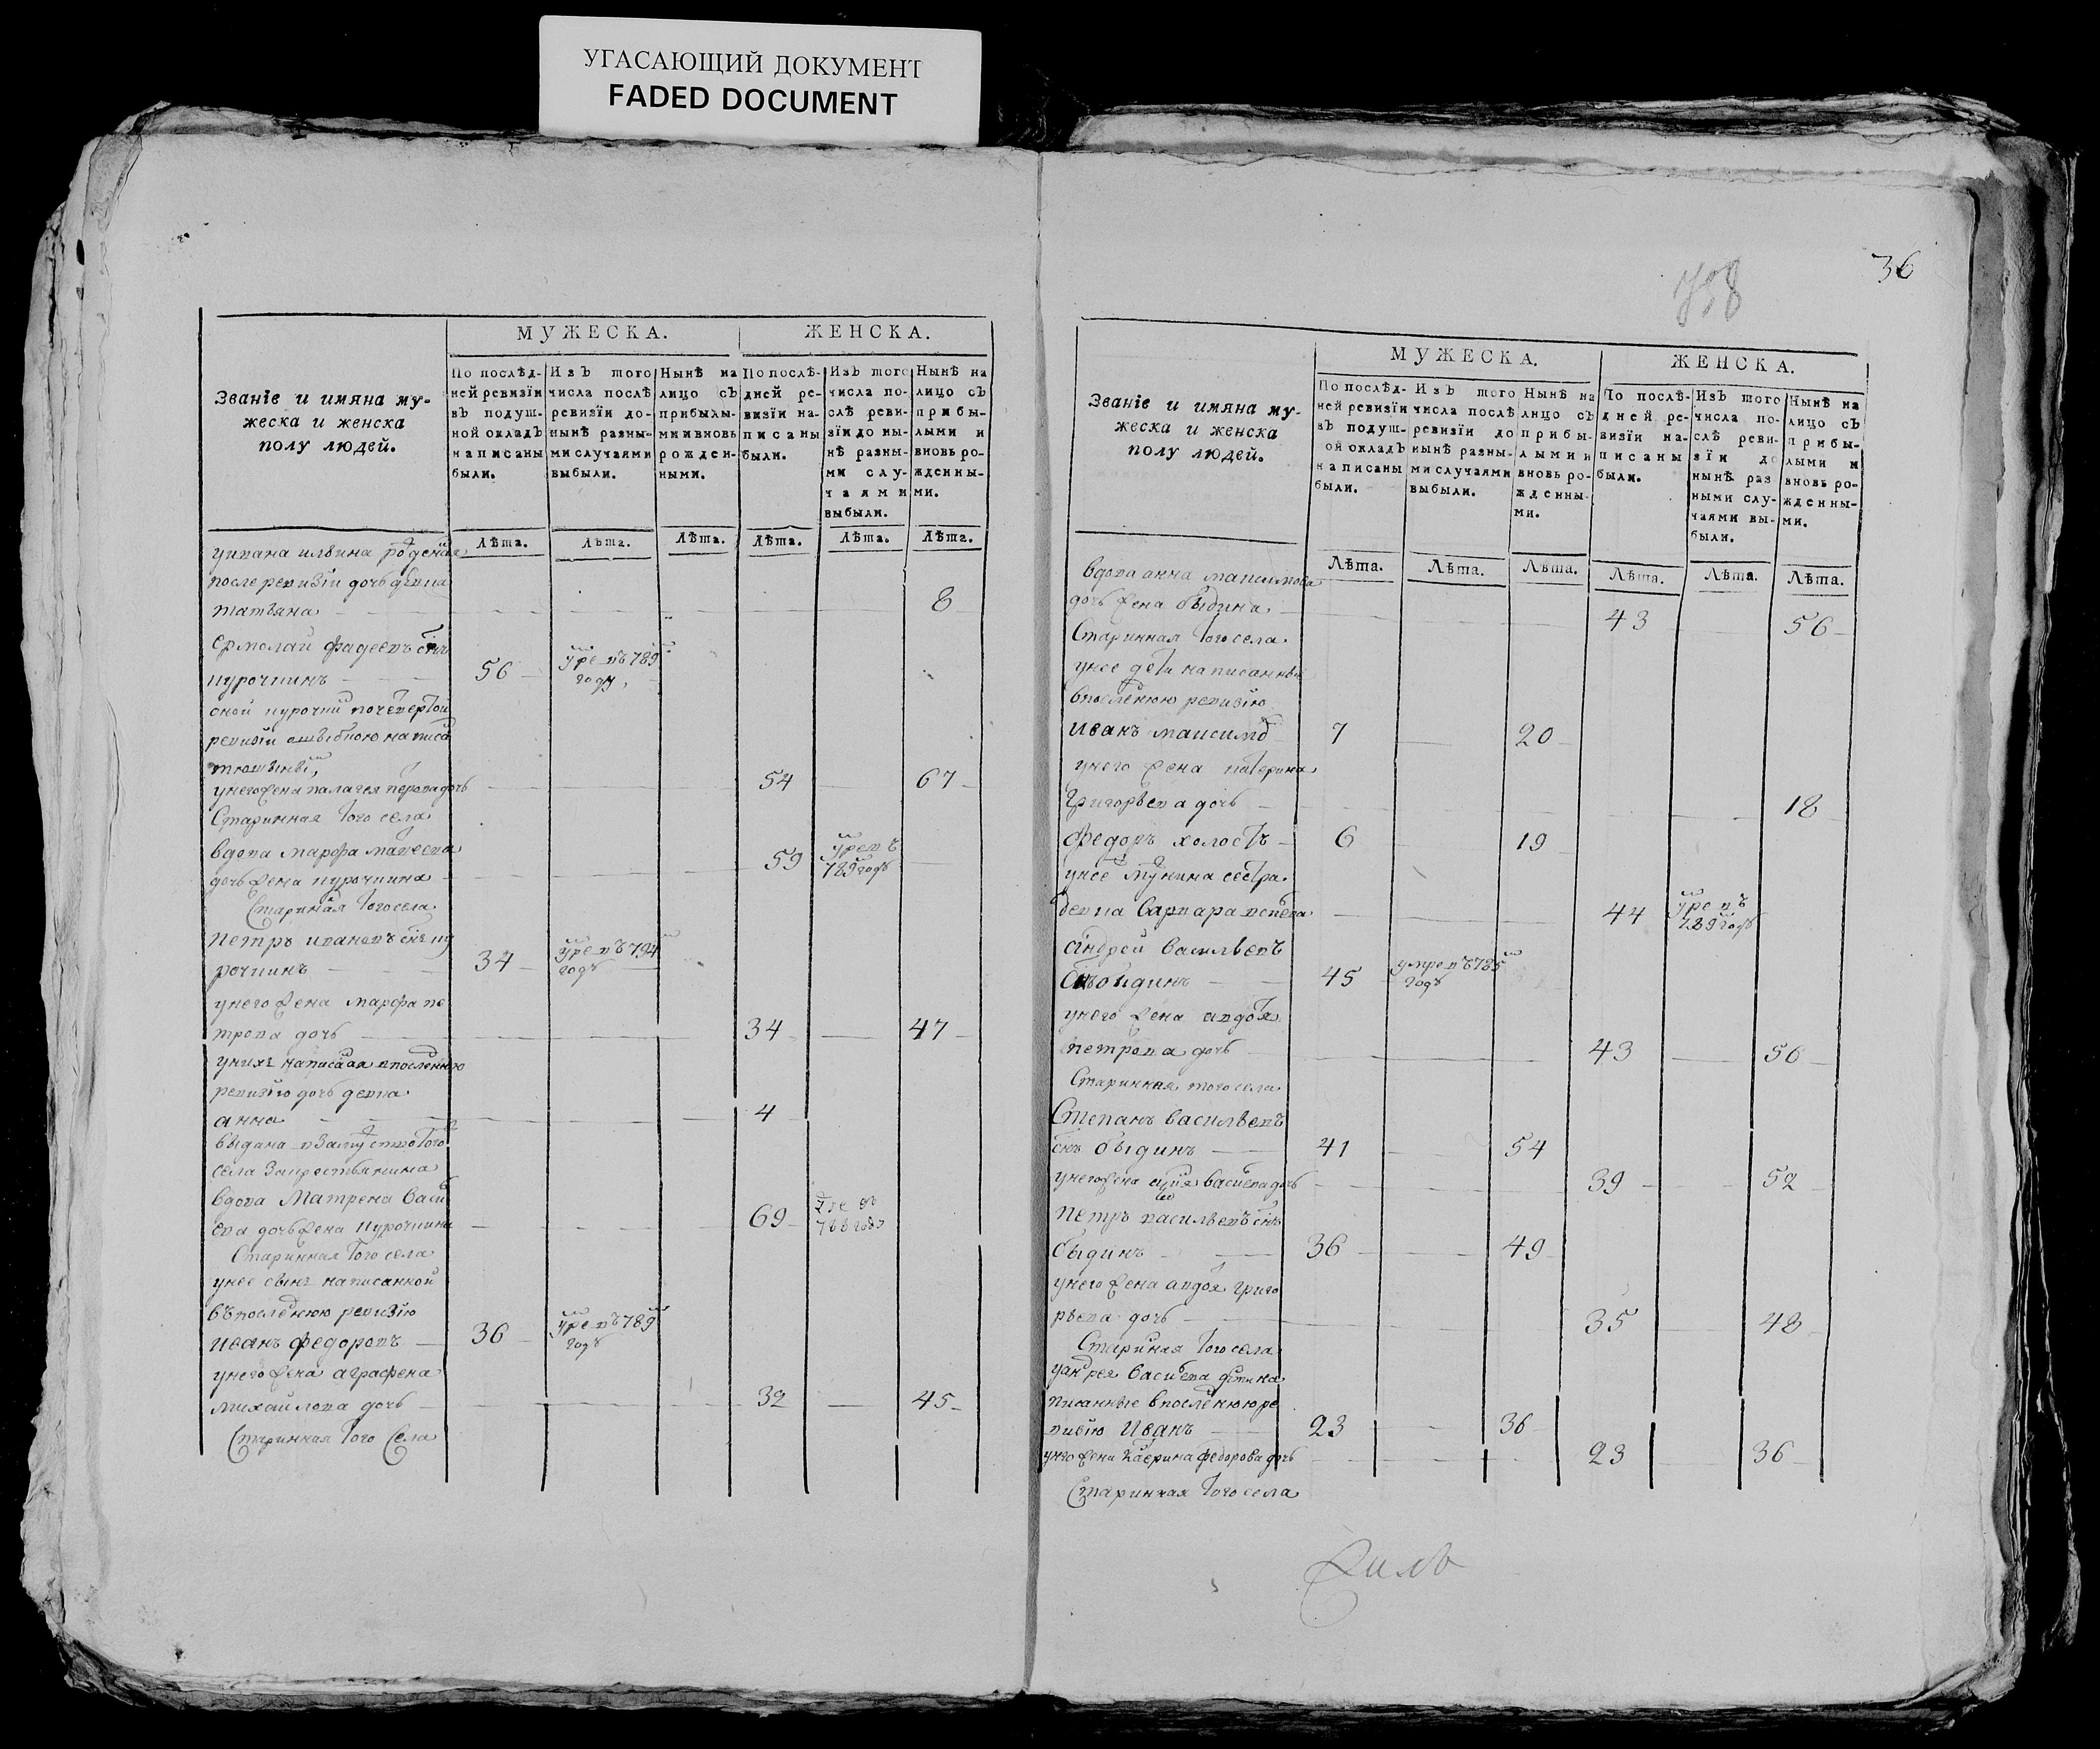 УГАСАЮЩИЙ ДОКУМЕНТ
FADED DOCUMENT
Званіе и имяна му-
жеска и женска
полу людей.
МУЖЕСКА.
ЖЕНСКА.
По послѣд-
ней ревизіи
въ подуш-
ной окладъ
написаны
были.
Изъ того
числа послѣ
ревизіи до-
нынѣ разны-
ми случаями
выбыли.
Нынѣ на
лицо съ
прибылы-
ми и вновь
рожден-
ными.
По послѣ-
дней ре-
визіи на-
писаны
были.
Изъ того
числа по-
слѣ реви-
зіи до ны-
нѣ разны-
ми слу-
чаями
выбыли.
Нынѣ на
лицо съ
прибы-
лыми и
вновь ро-
жденны-
ми.
Лѣта. Лѣта. Лѣта. Лѣта. Лѣта. Лѣта.
после ревизіи дочь девка
татьяна 8
ермолай фадеевъ снъ
курочкинъ 56 уре въ 789
году
ревизіи
унего жена палагея дочь 54 67
Старинная того села
вдова марфа матвеева
дочь жена курочкина 59 уре въ
789 годъ
Старинная того села
петръ ивановъ снъ ку
рочкинъ 34 уре въ 794
годъ
унего жена марфа пе
трова дочь 34 47
унихъ написаная впоследнюю
ревизію дочь девка
анна 4
выдана взамужство того
села закрестьянина
вдова Матрена васи
ева дочь жена курочкина 69
788 годъ
Старинная того села
унее сынъ написанной
въпоследнюю ревизію
иванъ федоровъ 36 уре въ 789
годъ
унего жена аграфена
михайлова дочь 32 45
Старинная того Села
36
Званіе и имяна му-
жеска и женска
полу людей.
МУЖЕСКА.
ЖЕНСКА.
По послѣд-
ней ревизіи
въ подуш-
ой окладъ
написаны
были.
Изъ того
числа послѣ
ревизіи до
нынѣ разны-
ми случаями
выбыли.
Нынѣ на
лицо съ
прибы-
лыми и
вновь ро-
жденны-
ми.
По послѣ-
дней ре-
визіи на-
писаны
были.
Изъ того
числа по-
слѣ реви-
зіи до
нынѣ раз
ными слу-
чаями вы-
были.
Нынѣ на
лицо съ
прибы-
лыми и
вновь ро-
жденны-
ми.
Лѣта. Лѣта. Лѣта. Лѣта. Лѣта. Лѣта.
вдова анна максимова
дочь жена быдина 43 56
Старинная того села
унее дети написанныя
впоследнюю ревизію
иванъ максимо 7 20
унего жена катерина
григорьева дочь 18
федоръ холостъ 6 19
унее мужнина сестра
девка варвара 44 уре въ
789 годъ
андрей васильевъ
снъ быдинъ 45 умре въ 785
годъ
унего жена авдотя
петрова дочь 43 56
Старинная того села
Степанъ васильевъ
снъ быдинъ 41 54
унего жена дочь 39 52
петръ васильевъ снъ
быдинъ 36 49
унего жена авдотя григо
рьева дочь 35 48
Старинная того села
уандрея васильева дети на
писанные впоследнюю ре
визію иванъ 23 36
унего жена катерина федорова дочь 23 36
Старинная того села